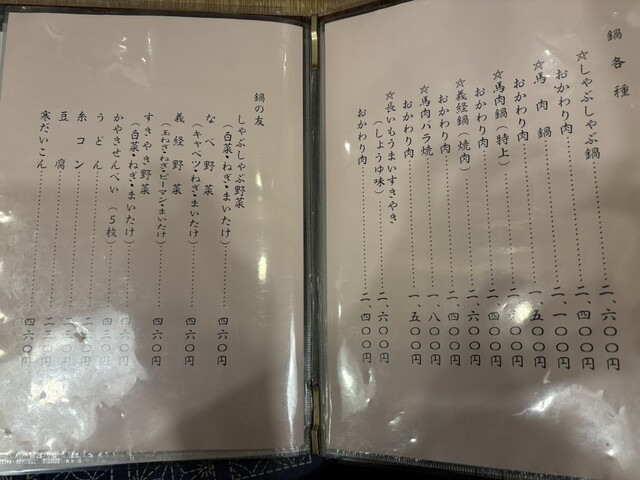 鍋各種
☆しゃぶしゃぶ鍋 二、六〇〇円
おかわり肉 二、四〇〇円
☆馬肉鍋 二、一〇〇円
おかわり肉 一、五〇〇円
☆馬肉鍋(特上)
おかわり肉 二、四〇〇円
☆義経鍋(焼肉) 二、六〇〇円
おかわり肉 二、四〇〇円
☆馬肉バラ焼 一、八〇〇円
おかわり肉 一、五〇〇円
☆長いもうまいすきやき
(しょうゆ味) 二、六〇〇円
おかわり肉 二、四〇〇円
鍋の友
しゃぶしゃぶ野菜
(白菜・ねぎ・まいたけ) 四六〇円
なべ野菜
(キャベツ・ねぎ・まいたけ) 四六〇円
義経野菜
(玉ねぎ・ねぎ・ピーマン・まいたけ) 四六〇円
すきやき野菜
(白菜・ねぎ・まいたけ) 四六〇円
かやきせんべい(5枚)
うどん
糸コン
豆腐
寒だいこん 四六〇円